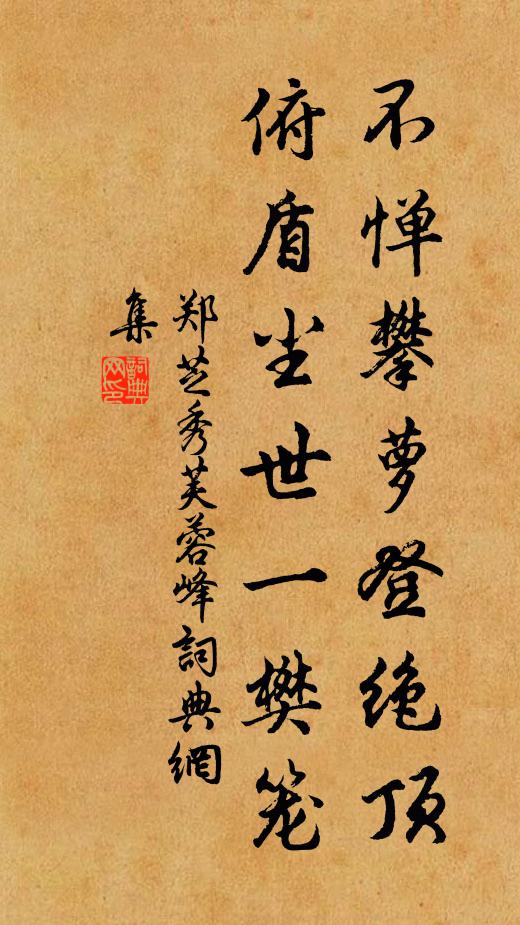 不惮攀萝登绝顶
俯盾尘世一樊笼
郑芝秀芙蓉峰詞典網
集
詞典
网印